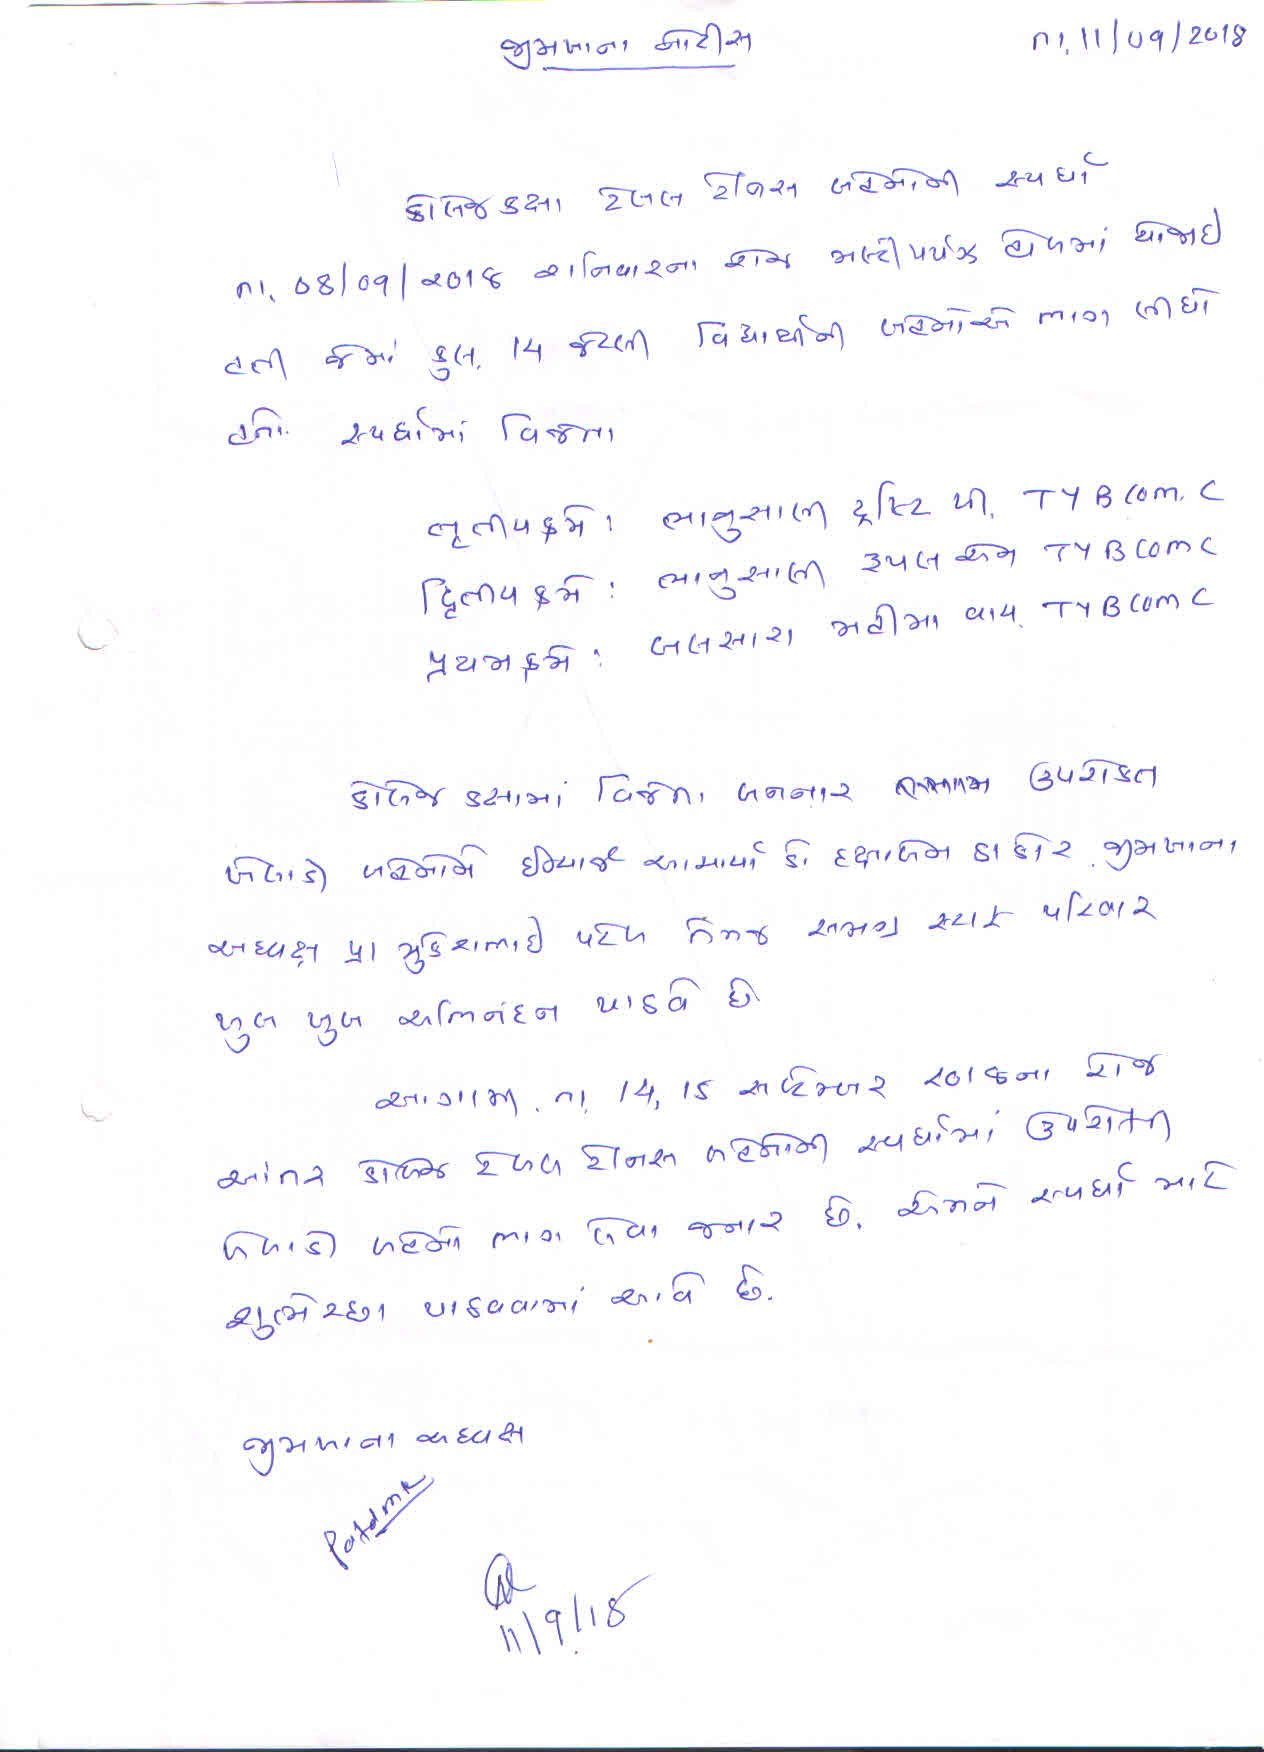 જીમખાના નોટીસ
તા. 11/09/2018
કોલેજ કક્ષા ટેબલ ટેનિસ બહેનોની સ્પર્ધા
તા. 08/09/2018 શનિવારના રોજ મલ્ટીપર્પઝ હોલમાં યોજાઇ
હતી જેમાં કુલ. 14 જેટલી વિદ્યાર્થીની બહેનોએ ભાગ લીધો
હતો. સ્પર્ધામાં વિજેતા
તૃતીય ક્રમે : ભાનુસાલી દ્રષ્ટિ પી. TYBCOM. C
દ્વિતીય ક્રમે : ભાનુસાલી રૂપલ એમ TYBCOM C
પ્રથમ ક્રમે : બલસારા મહીમા વાય. TYBCOM C
કોલેજ કક્ષામાં વિજેતા બનનાર ઉપરોક્ત
ખેલાડી બહેનોને ઈન્ચાર્જ આચાર્યા ડૉ. દક્ષાબેન ઠાકોર, જીમખાના
અધ્યક્ષ પ્રા મુકેશભાઈ પટેલ તેમજ સમગ્ર સ્ટાફ પરિવાર
ખુબ ખુબ અભિનંદન પાઠવે છે
આગામી. તા. 14, 15 સપ્ટેમ્બર ૨૦૧૮ના રોજ
આંતર કોલેજ ટેબલ ટેનિસ બહેનોની સ્પર્ધામાં ઉપરોક્ત
ખેલાડી બહેનો ભાગ લેવા જનાર છે. એમને સ્પર્ધા માટે
શુભેચ્છા પાઠવવામાં આવે છે.
જીમખાના અધ્યક્ષ
11/9/18